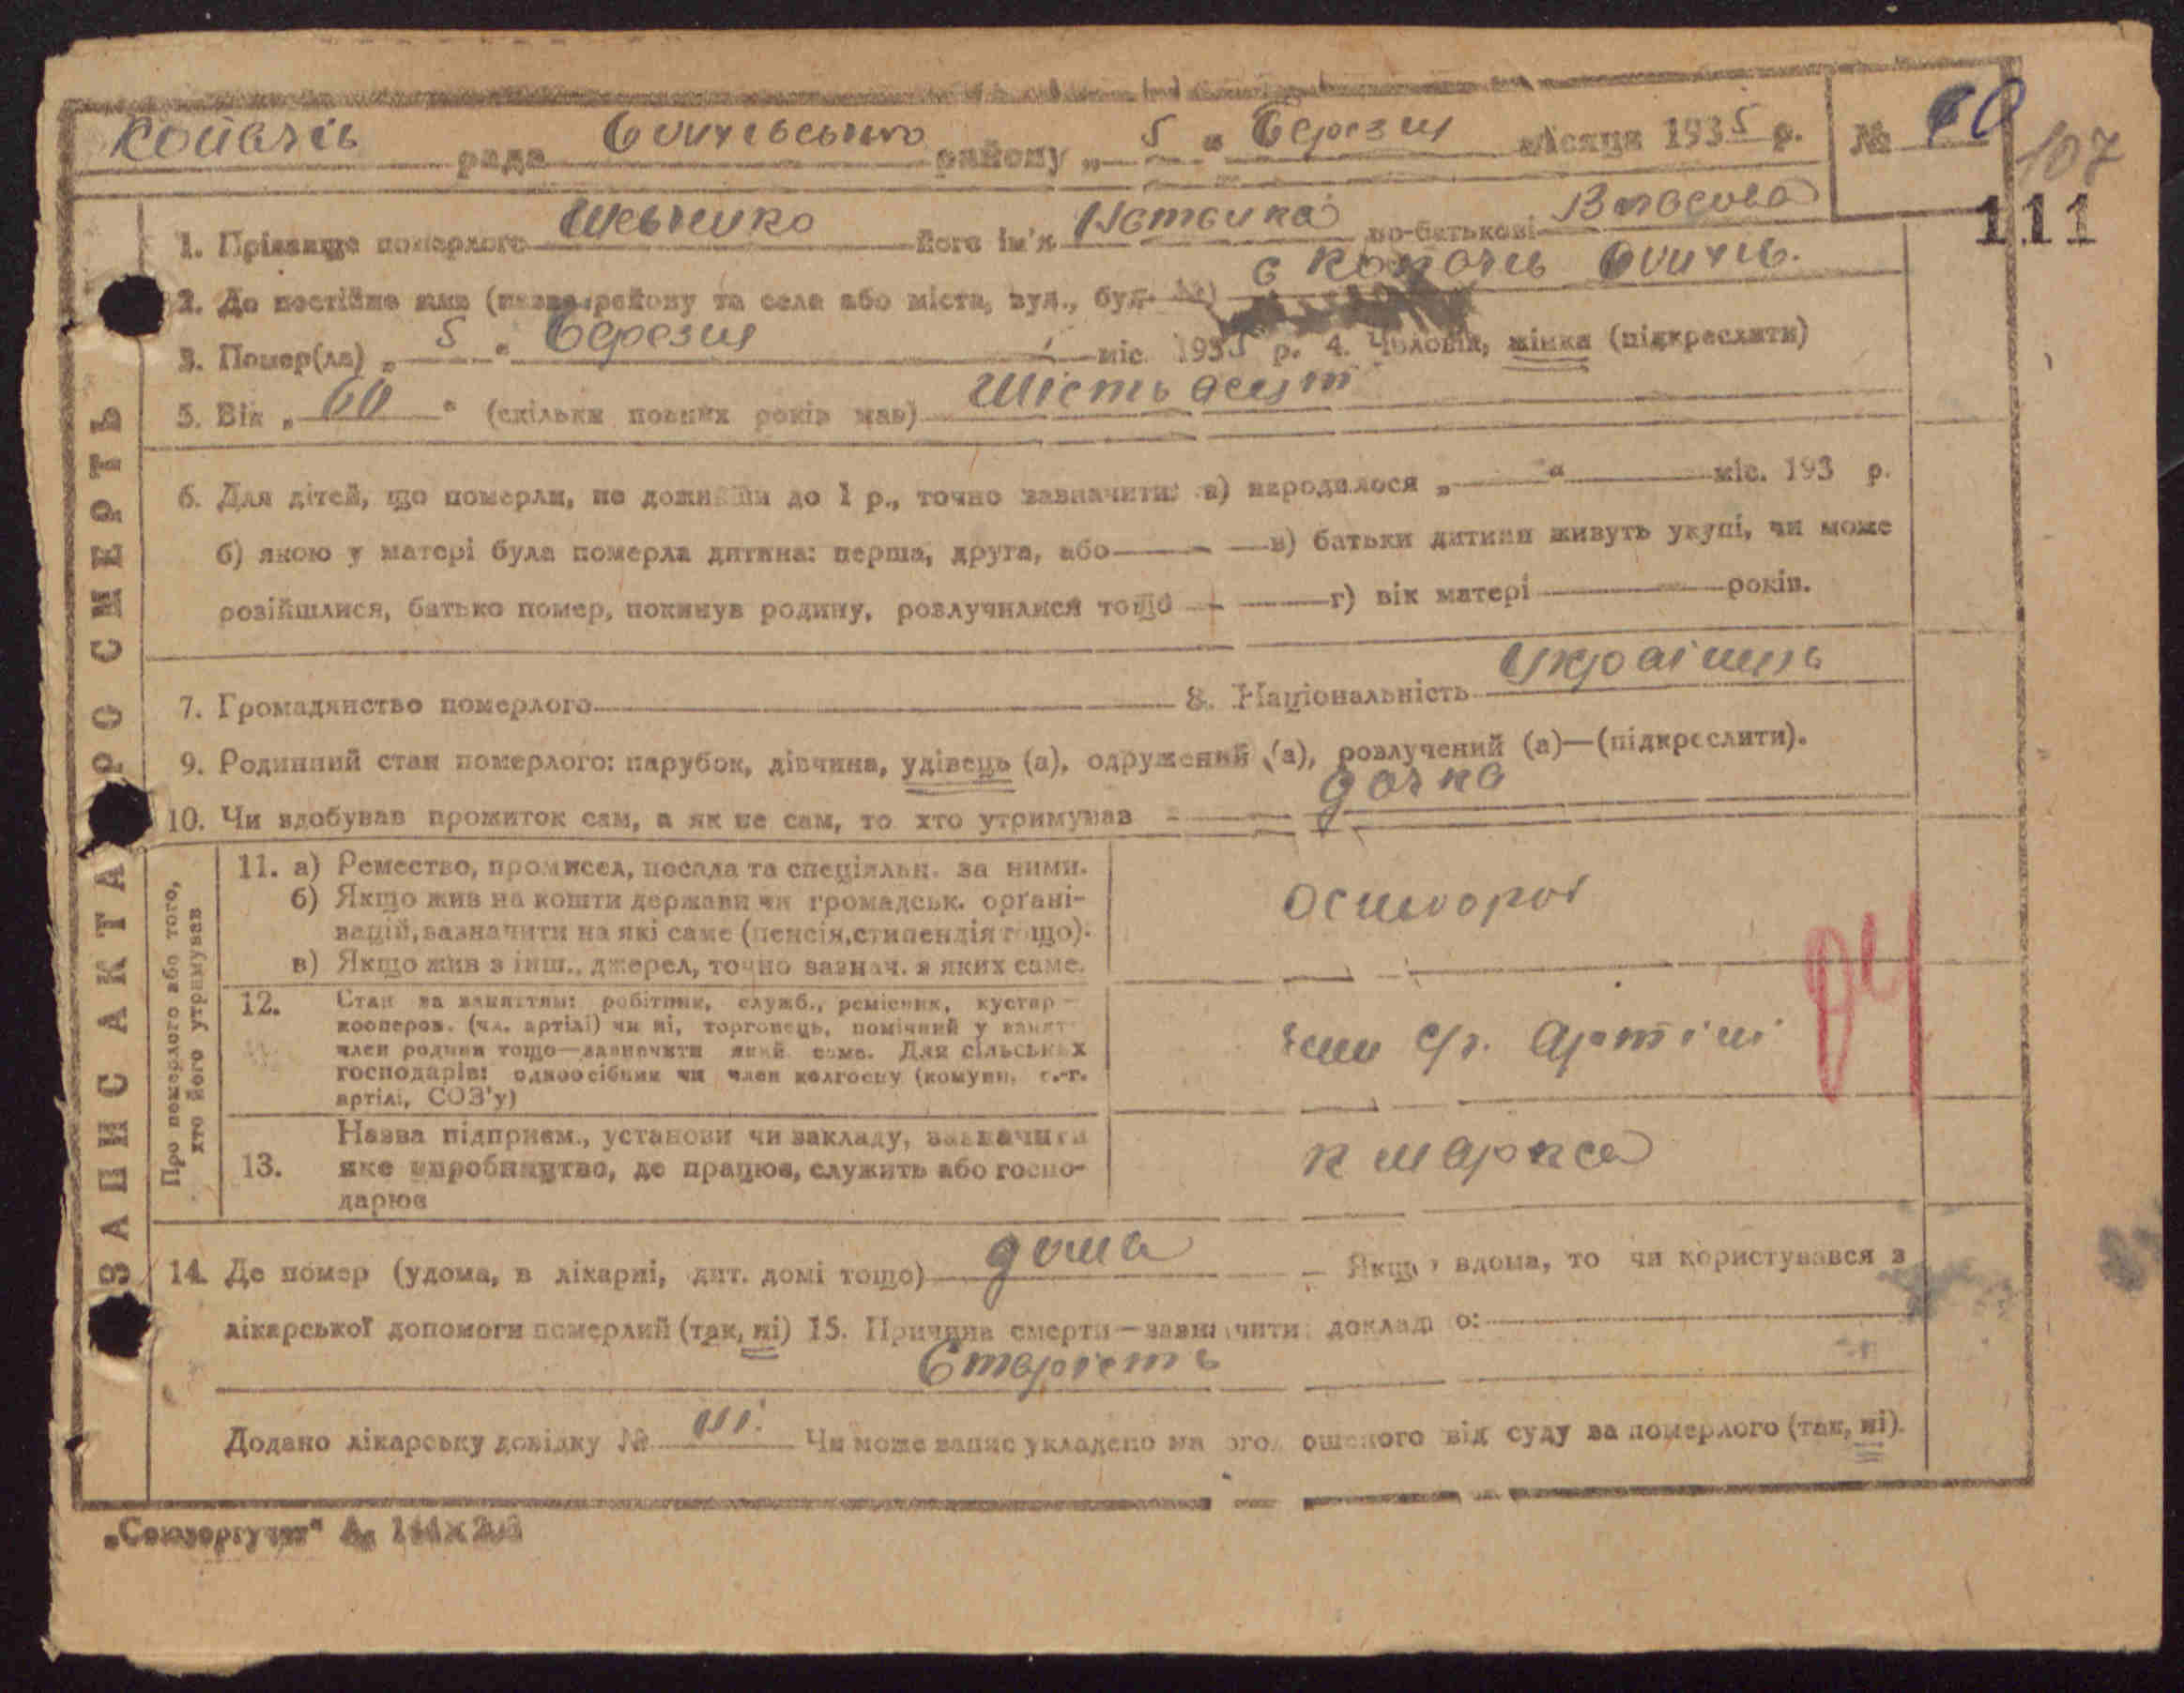 Копачів рада району „ 5 “ березня місяця 1935 р. № 10
107
111
ЗАПИС АКТА ПРО СМЕРТЬ
1. Прізвище померлого Шевченко його ім'я Наталка по-батькові Власова
2. Де постійно жив (назва району та села або міста, вул., буд. №) с Копачів
3. Помер(ла) „ 5 “ березня міс. 1935 р. 4. Чоловік, жінка (підкреслити)
5. Вік „ 60 “ (скільки повних років мав) Шістьдесят
6. Для дітей, що померли, не доживши до 1 р., точно зазначити: а) народилося „ “ міс. 193 р.
б) якою у матері була померла дитина: перша, друга, або в) батьки дитини живуть укупі, чи може
розійшлися, батько помер, покинув родину, розлучилися тощо г) вік матері років.
7. Громадянство померлого 8. Національність Українць
9. Родинний стан померлого: парубок, дівчина, удівець (а), одружений (а), розлучений (а)—(підкреслити).
10. Чи здобував прожиток сам, а як не сам, то хто утримував дочка
Про померлого або того, хто його утримував
11. а) Ремество, промисел, посада та спеціяльн. за ними.
б) Якщо жив на кошти держави чи громадськ. орґані-
зацій, зазначити на які саме (пенсія, стипендія тощо).
в) Якщо жив з інш. джерел, точно зазнач. з яких саме.
12. Стан за заняттям: робітник, служб., ремісник, кустар—
кооперов. (чл. артілі) чи ні, торговець, помічний у занят.
член родини тощо—зазначити який саме. Для сільських
господарів: одноосібник чи член колгоспу (комуни, с.-г.
артілі, СОЗ'у)
член с/г. артілі
13. Назва підприєм., установи чи закладу, зазначити
яке виробництво, де працює, служить або госпо-
дарює
К Маркса
14. Де помер (удома, в лікарні, дит. домі тощо) дома Якщо вдома, то чи користувався з
лікарської допомоги померлий (так, ні) 15. Причина смерти—зазначити докладно:
Старість
Додано лікарську довідку № ні. Чи може запис укладено на оголошеного від суду за померлого (так, ні).
„Союзоргучет“